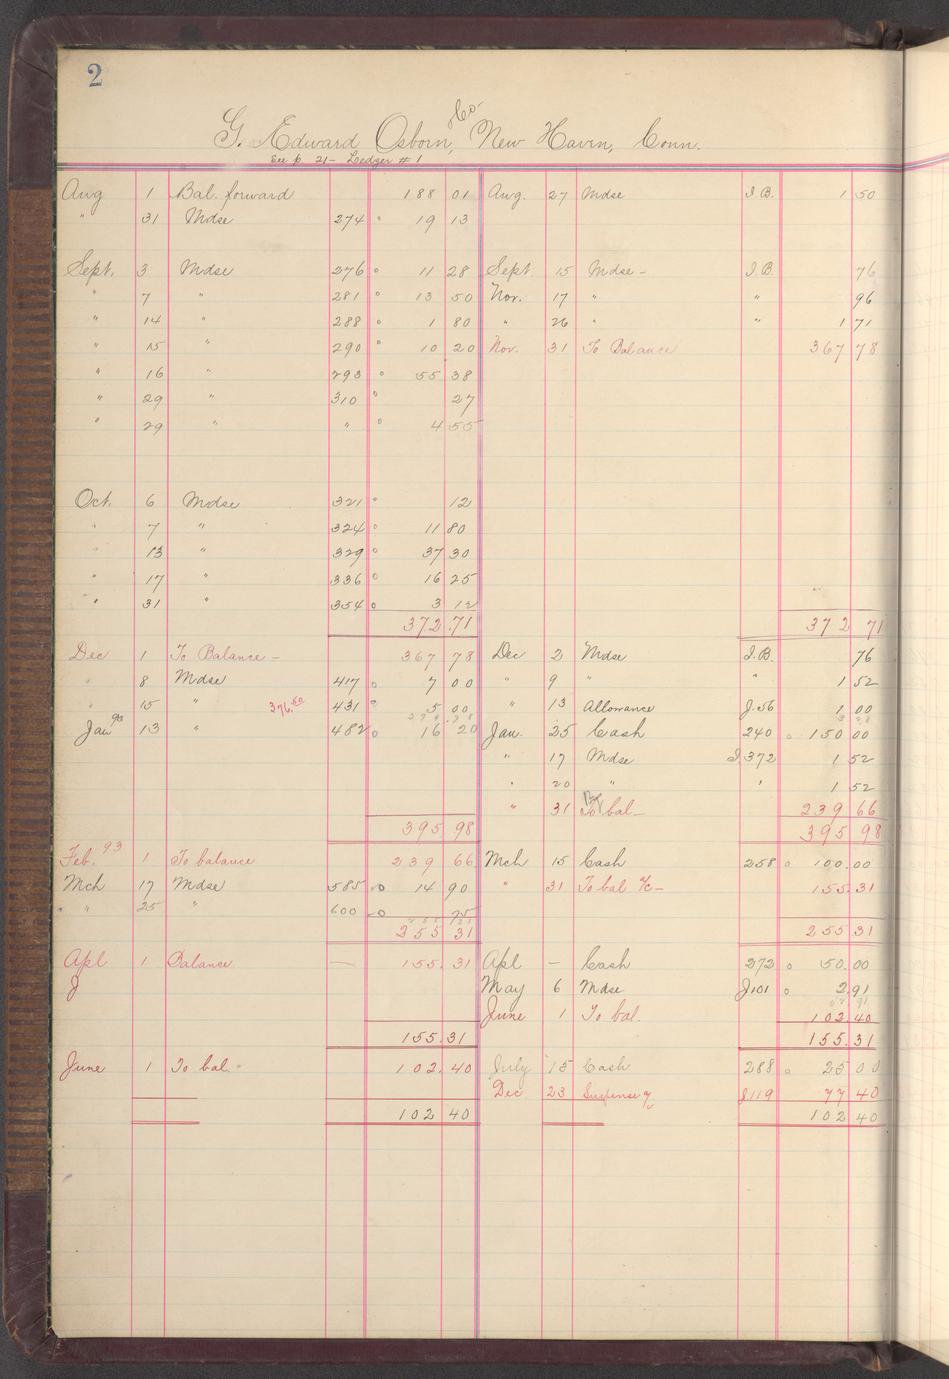 2
G. Edward Osborn, & Co. New Haven, Conn.
See p. 21- Ledger # 1
Aug 1 Bal. forward 188 01 Aug. 27 Mdse I.B. 1 50
" 31 Mdse 274 19 13
Sept. 3 Mdse 276 11 28 Sept. 15 Mdse - I.B. 76
" 7 " 281 13 50 Nov. 17 " " 96
" 14 " 288 1 80 " 26 " " 1 71
" 15 " 290 10 20 Nov. 31 To Balance 367 78
" 16 " 293 55 38
" 29 " 310 27
" 29 " " 4 55
Oct. 6 Mdse 321 12
" 7 " 324 11 80
" 13 " 329 37 30
" 17 " 336 16 25
" 31 " 354 3 12
372.71 372 71
Dec 1 To Balance - 367 78 Dec 2 Mdse I.B. 76
" 8 Mdse 417 7 00 " 9 " " 1 52
" 15 " 376.50 431 5 00 " 13 Allowance J.56 1 00
Jan 93 13 " 482 16 20 Jan. 25 Cash 240 150 00
" 17 Mdse I372 1 52
" 20 " " 1 52
" 31 By To bal - 239 66
395 98 395 98
Feb. 93 1 To balance 239 66 Mch 15 Cash 258 100.00
Mch 17 Mdse 585 14 90 " 31 To bal a/c - 155.31
" " 25 " 600 75
255 31 255 31
Apl 1 Balance — 155.31 Apl - Cash 272 50.00
J May 6 Mdse J101 2.91
June 1 To bal. 102.40
155.31 155.31
June 1 To bal. " 102.40 July 15 Cash 288 25 00
Dec 23 Suspense J119 77 40
102 40 102 40